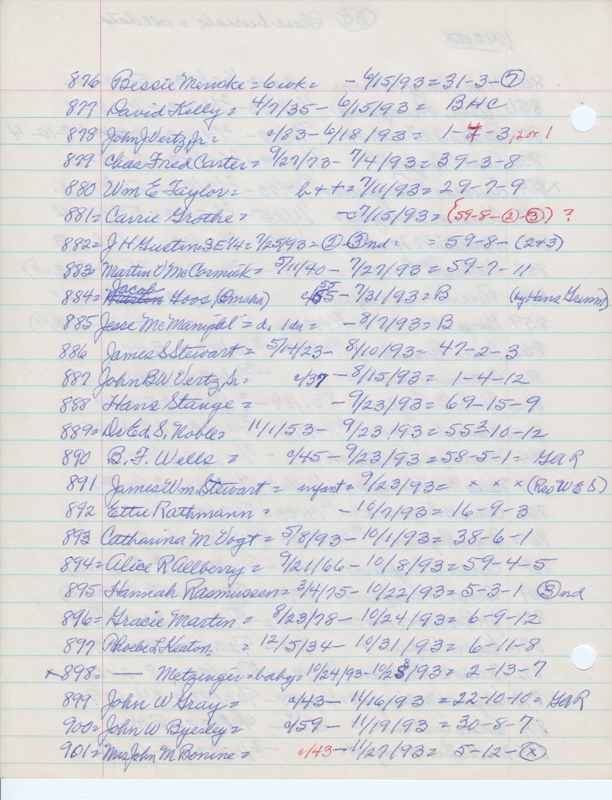 876 Bessie Mencke = 6 wk = - 6/15/93 = 31-3-7
877 David Kelly = 4/7/35 - 6/15/93 = BHC
878 John J Vertz, Jr = c/83 - 6/18/93 = 1-4-3, 2 or 1
879 Chas Fred Carter = 9/27/73 - 7/4/93 = 39-3-8
880 Wm E Taylor = b + t = 7/11/93 = 29-7-9
881 = Carrie Grothe = - c 7/15/93 = (59-8-2-3) ?
882 = J H Gustin SE 1/4 = 7/25/93 = 2-3nd = 59-8-(2+3)
883 = Martin V McCormick = 5/11/40 - 7/27/93 = 59-7-11
Jacob
884 = Goos (Omaha) c/35 - 7/31/93 = B (by Hans Grimm)
885 Jesse McManigal = d. 1 da = - 8/7/93 = B
886 James S Stewart = 5/14/23 - 8/10/93 = 47-2-3
887 John B W Vertz, Sr = c/37 - 8/15/93 = 1-4-12
888 Hans Stange = - 9/23/93 = 69-15-9
889 = Dr Ed. S. Noble = 11/1/53 - 9/23/93 = 55 2-10-12
890 B. F. Wells = c/45 - 9/23/93 = 58-5-1 = GAR
891 James Wm Stewart = infant = 9/23/93 = x x x (Rev W E S)
892 Etta Rathmann = - 10/7/93 = 16-9-3
893 Catharina M Vogt = 5/8/93 - 10/1/93 = 38-6-1
894 = Alice R Aelberry = 9/21/66 - 10/8/93 = 59-4-5
895 Hannah Rasmussen = 3/4/75 - 10/22/93 = 5-3-1 3nd
896 = Gracie Martin = 8/23/78 - 10/24/93 = 6-9-12
897 Phoebe L Keaton = 12/5/34 - 10/31/93 = 6-11-8
x 898 = — Metzinger = baby = 10/24/93 - 10/28/93 = 2-13-7
899 John W Gray = c/43 - 11/16/93 = 22-10-10 = GAR
900 = John W Byerley = c/59 - 11/19/93 = 30-8-7
901 = Mrs John M Bonine = c/43 - 11/27/93 = 5-12-x